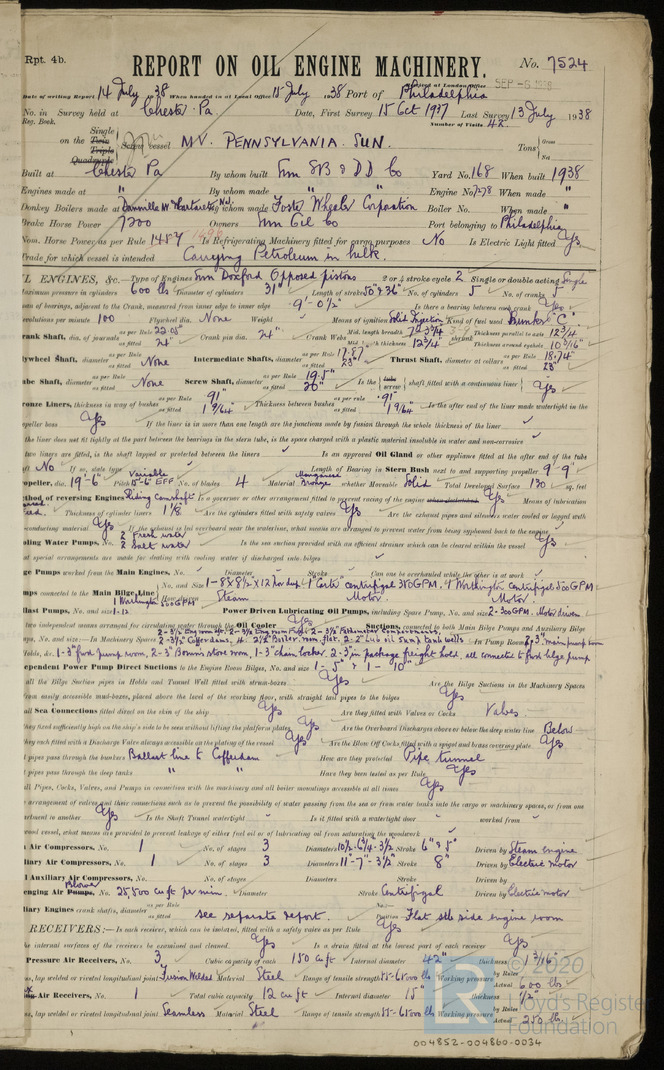 Rpt. 4b.
REPORT ON OIL ENGINE MACHINERY.
No. 7524
Received at London Office SEP -6 1938
Date of writing Report 14 July 1938 When handed in at Local Office 15 July 1938 Port of Philadelphia
No. in Survey held at Chester Pa. Date, First Survey 15 Oct 1937 Last Survey 13 July 1938
Reg. Book. Number of Visits 42
on the Single Twin Triple Quadruple Screw vessel MV. PENNSYLVANIA SUN. Tons Gross
Built at Chester Pa By whom built Sun SB & DD Co Yard No. 168 When built 1938
Engines made at " By whom made " " Engine No. 7278 When made "
Donkey Boilers made at Dansville NY & Carteret NJ By whom made Foster Wheeler Corporation Boiler No. When made "
Brake Horse Power 7200 Owners Sun Oil Co Port belonging to Philadelphia
Nom. Horse Power as per Rule 1457 Is Refrigerating Machinery fitted for cargo purposes No Is Electric Light fitted Yes
Trade for which vessel is intended Carrying Petroleum in bulk.
OIL ENGINES, &c.—Type of Engines Sun Doxford Opposed pistons 2 or 4 stroke cycle 2 Single or double acting Single
Maximum pressure in cylinders 600 lbs Diameter of cylinders 31" Length of stroke 50" & 36" No. of cylinders 5 No. of cranks 5
Span of bearings, adjacent to the Crank, measured from inner edge to inner edge 9'-0½" Is there a bearing between each crank Yes
Revolutions per minute 100 Flywheel dia. None Weight Means of ignition Solid Injection Kind of fuel used Bunker "C"
Crank Shaft, dia. of journals as per Rule 22.05" as fitted 24" Crank pin dia. 24" Crank Webs Mid. length breadth Mid. length thickness 12¾" shrunk Thickness parallel to axis 12¾ Thickness around eyehole 10 5/16"
Flywheel Shaft, diameter as per Rule as fitted None Intermediate Shafts, diameter as per Rule 17.87 as fitted 23" Thrust Shaft, diameter at collars as per Rule 18.74" as fitted 23"
Tube Shaft, diameter as per Rule as fitted None Screw Shaft, diameter as per Rule 19.5" as fitted 20" Is the tube screw shaft fitted with a continuous liner Yes
Bronze Liners, thickness in way of bushes as per Rule .91" as fitted 1 9/64" Thickness between bushes as per rule .91" as fitted 1 9/64" Is the after end of the liner made watertight in the
propeller boss Yes If the liner is in more than one length are the junctions made by fusion through the whole thickness of the liner
If the liner does not fit tightly at the part between the bearings in the stern tube, is the space charged with a plastic material insoluble in water and non-corrosive
If two liners are fitted, is the shaft lapped or protected between the liners Is an approved Oil Gland or other appliance fitted at the after end of the tube
shaft No If so, state type Length of Bearing in Stern Bush next to and supporting propeller 9'-9"
Propeller, dia. 19'-6 Pitch Variable 15'-6 EFF No. of blades 4 Material Manganese Bronze whether Moveable Solid Total Developed Surface 130 sq. feet
Method of reversing Engines Sliding Camshaft Is a governor or other arrangement fitted to prevent racing of the engine when declutched Yes Means of lubrication
forced. Thickness of cylinder liners 1⅞ Are the cylinders fitted with safety valves Yes Are the exhaust pipes and silencers water cooled or lagged with
non-conducting material Yes If the exhaust is led overboard near the waterline, what means are arranged to prevent water from being syphoned back to the engine
Cooling Water Pumps, No. 2 Fresh water 2 Salt water Is the sea suction provided with an efficient strainer which can be cleared within the vessel Yes
What special arrangements are made for dealing with cooling water if discharged into bilges
Bilge Pumps worked from the Main Engines, No. Diameter Stroke Can one be overhauled while the other is at work
Pumps connected to the Main Bilge Line No. and Size 1-8x8½x12 hor dup. 1 Carter centrifugal 350 GPM. 1 Worthington Centrifugal 500 GPM 1 Worthington 500 GPM How driven Steam Motor Motor
Ballast Pumps, No. and size 1-12 Power Driven Lubricating Oil Pumps, including Spare Pump, No. and size 2-300 GPM. Motor driven
Are two independent means arranged for circulating water through the Oil Cooler Yes Suctions, connected to both Main Bilge Pumps and Auxiliary Bilge
Pumps, No. and size:—In Machinery Spaces 2-3½" Eng room Aft. 2-3½" Eng room Ford. 2-3½" Cofferdams, In Pump Room 2, 3" main pump room
In Holds, &c. 1-3" ford pump room, 2-3" Bosun's store room, 1-3" chain locker, 2-3" in package freight hold, all connected to ford bilge pump
Independent Power Pump Direct Suctions to the Engine Room Bilges, No. and size 1-5" & 1-10"
Are all the Bilge Suction pipes in Holds and Tunnel Well fitted with strum-boxes Yes Are the Bilge Suctions in the Machinery Spaces
from easily accessible mud-boxes, placed above the level of the working floor, with straight tail pipes to the bilges Yes
Are all Sea Connections fitted direct on the skin of the ship Yes Are they fitted with Valves or Cocks Valves.
Are they fixed sufficiently high on the ship's side to be seen without lifting the platform plates Yes Are the Overboard Discharges above or below the deep water line Below
Are they each fitted with a Discharge Valve always accessible on the plating of the vessel Yes Are the Blow Off Cocks fitted with a spigot and brass covering plate Yes
What pipes pass through the bunkers Ballast line to Cofferdam How are they protected Pipe tunnel
What pipes pass through the deep tanks " " Have they been tested as per Rule Yes
Are all Pipes, Cocks, Valves, and Pumps in connection with the machinery and all boiler mountings accessible at all times Yes
Is the arrangement of valves and their connections such as to prevent the possibility of water passing from the sea or from water tanks into the cargo or machinery spaces, or from one
compartment to another Yes Is the Shaft Tunnel watertight Is it fitted with a watertight door worked from
If a wood vessel, what means are provided to prevent leakage of either fuel oil or of lubricating oil from saturating the woodwork
Main Air Compressors, No. 1 No. of stages 3 Diameters 10½-6¾-3½ Stroke 6" & 5" Driven by Steam engine
Auxiliary Air Compressors, No. 1 No. of stages 3 Diameters 11"-7"-3½" Stroke 8" Driven by Electric motor
Small Auxiliary Air Compressors, No. No. of stages Diameters Stroke Driven by
Scavenging Air Pumps, Blower No. 25,500 cu ft per min. Diameter Stroke Centrifugal Driven by Electric motor
Auxiliary Engines crank shafts, diameter as per Rule as fitted see separate report. Position Yes Flat stb side engine room
AIR RECEIVERS:—Is each receiver, which can be isolated, fitted with a safety valve as per Rule Yes
Can the internal surfaces of the receivers be examined and cleaned. Yes Is a drain fitted at the lowest part of each receiver Yes
High Pressure Air Receivers, No. 3 Cubic capacity of each 150 cu ft Internal diameter 42" thickness 1 3/16"
Seamless, lap welded or riveted longitudinal joint Fusion Welded Material Steel Range of tensile strength 55-65000 lbs Working pressure by Rules Actual 600 lbs
Starting Air Receivers, No. 1 Total cubic capacity 12 cu ft Internal diameter 15" thickness ½"
Seamless, lap welded or riveted longitudinal joint Seamless Material Steel Range of tensile strength 55-65000 lbs Working pressure by Rules Actual 250 lbs
© 2020
Lloyd's Register
Foundation
004852-004860-0034